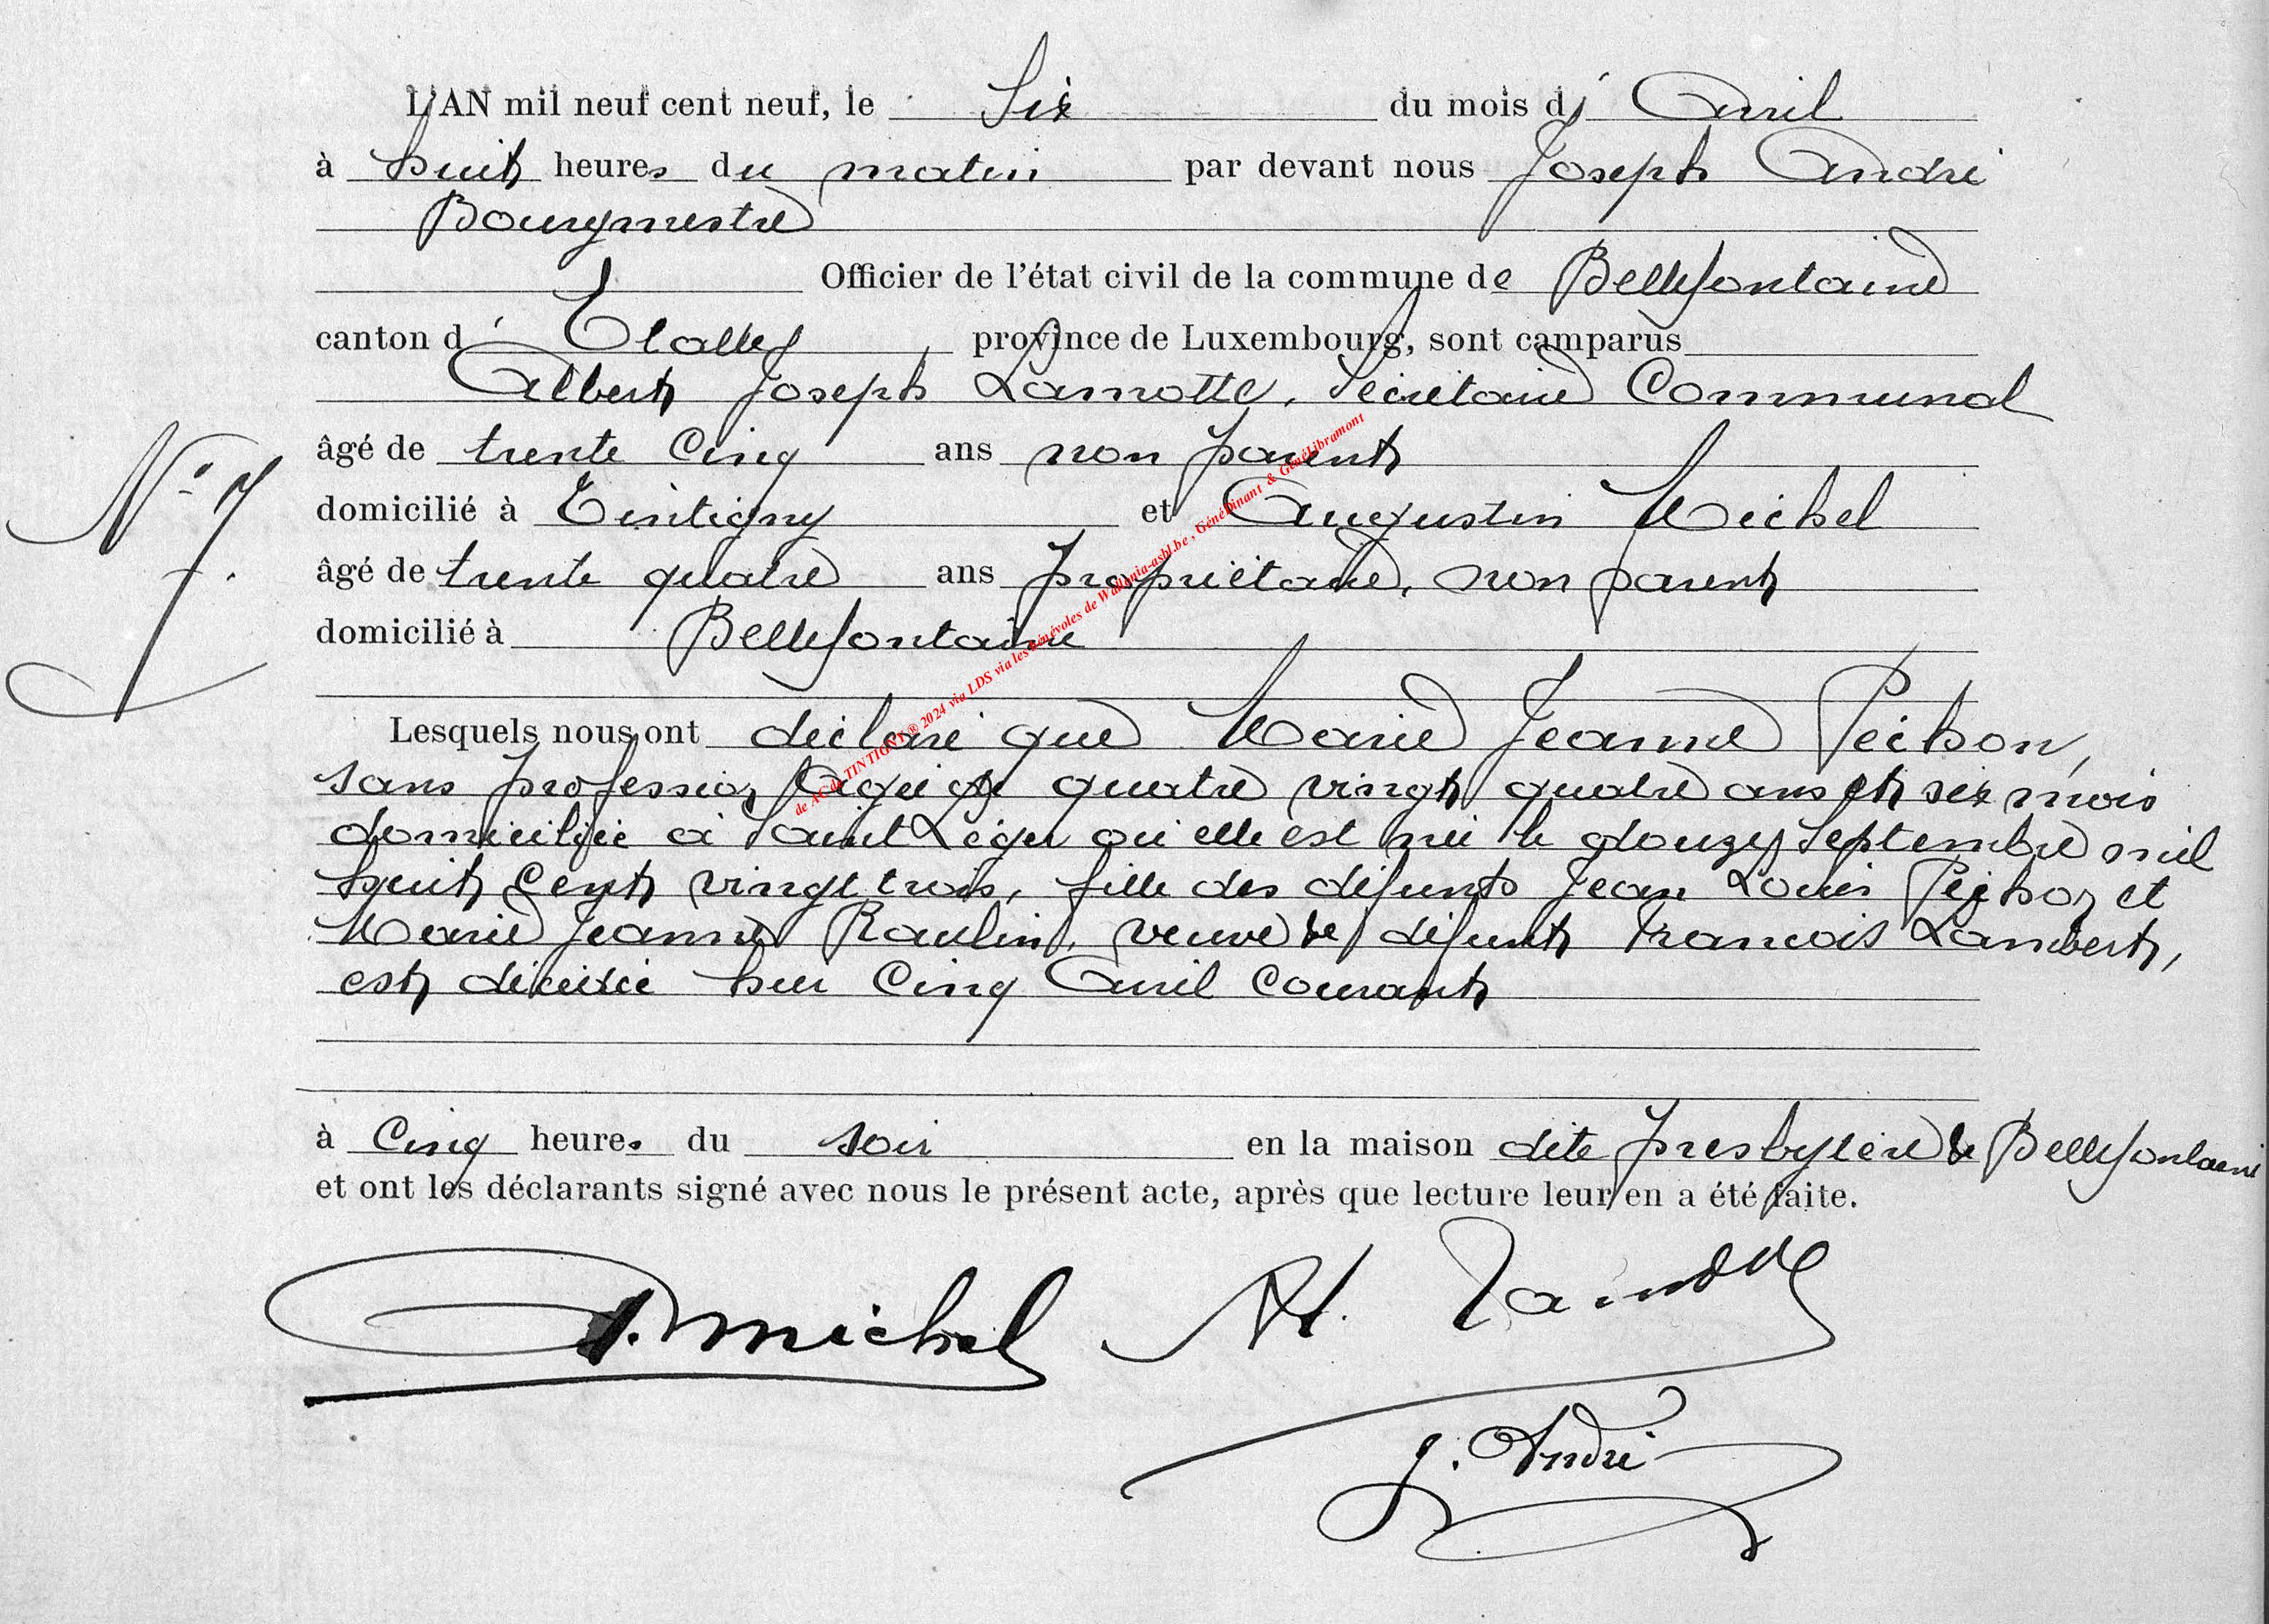 L'AN mil neuf cent neuf, le Six du mois d' Avril
à huit heures du matin par devant nous Joseph André
Bourgmestre
Officier de l'état civil de la commune de Bellefontaine
canton d' Etalle province de Luxembourg, sont camparus
Albert Joseph Lamotte, Secrétaire Communal
âgé de trente Cinq ans non parent
domicilié à Tintigny et Augustin Michel
N° 7.
âgé de trente quatre ans propriétaire, non parent
domicilié à Bellefontaine
Lesquels nous ont déclaré que Marie Jeanne Péchon,
sans profession, âgée de quatre vingt quatre ans et six mois
domiciliée à Saint Léger où elle est née le douze Septembre mil
huit cent vingt trois, fille des défunts Jean Louis Péchon et
Marie Jeanne Raulin, veuve de défunt François Lambert,
est décédée hier Cinq Avril Courant
à Cinq heures du soir en la maison dite presbytère de Bellefontaine
et ont les déclarants signé avec nous le présent acte, après que lecture leur en a été faite.
A. Michel Al. Lamotte
J. André
de AC de TINTIGNY ® 2024 via LDS via les bénévoles de Wallonia-asbl.be , GénéDinant & GénéLibramont